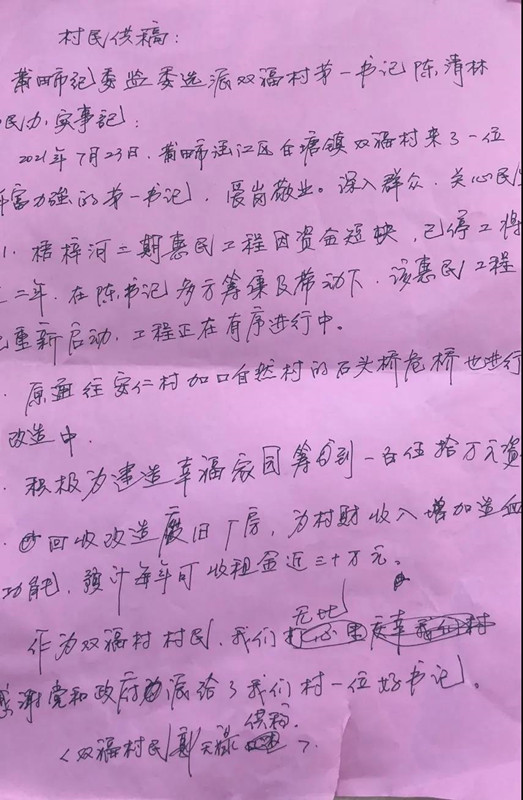 村民供稿:
莆田市纪委监委选派双福村第一书记陈清林
民办实事记:
2021年7月23日,莆田市涵江区白塘镇双福村来了一位
富力强的第一书记,爱岗敬业。深入群众,关心民
1. 梧梓河二期惠民工程因资金短缺,已停工将
二年,在陈书记多方筹集及带动下,该惠民工程
重新启动,工程正在有序进行中。
原通往安仁村加口自然村的石头桥危桥也进行
改造中.
积极为建造幸福家园筹到一百伍拾万元资
回收改造废旧厂房,为村财收入增加造血
功能,预计每年可收租金近三十万元。
作为双福村村民,我们无比庆幸
感谢党和政府派给了我们村一位好书记。
<双福村民 供稿>